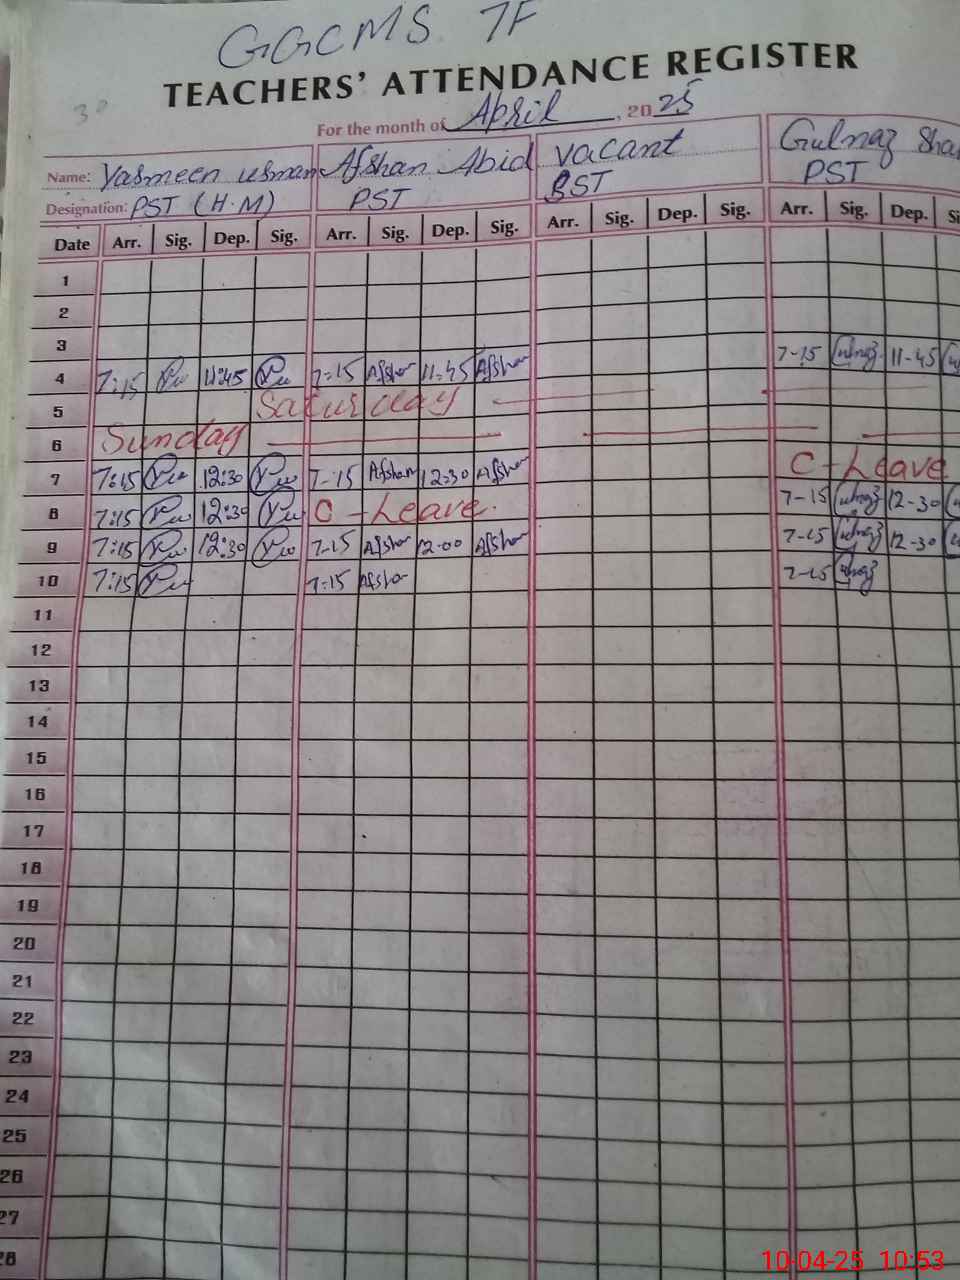 GGCMS 7F
TEACHERS' ATTENDANCE REGISTER
30
For the month of April, 2025
Name: Yasmeen usman Afshan Abid vacant Gulnaz Sha
Designation: PST (H.M) PST SST PST
Date Arr. Sig. Dep. Sig. Arr. Sig. Dep. Sig. Arr. Sig. Dep. Sig. Arr. Sig. Dep. Si
1
2
3
4 7:15 11:45 7:15 Afshan 11-45 Afshan 7-15 11-45
5 Saturday
6 Sunday
7 7:15 12:30 7-15 Afshan 12:30 Afshan C-Leave
8 7:15 12:30 C-Leave. 7-15 12-30
9 7:15 12:30 7-15 Afshan 12-00 Afshan 7-15 12-30
10 7:15 7:15 Afshan 7-15
11
12
13
14
15
16
17
18
19
20
21
22
23
24
25
26
27
28
10-04-25 10:53